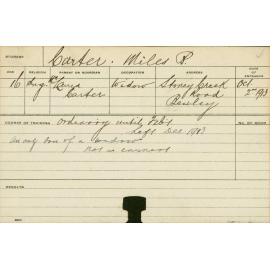 STUDENT
Carter. Miles R.
AGE RELIGION PARENT OR GUARDIAN OCCUPATION ADDRESS DATE OF ENTRANCE
16 Mrs Widow Stoney Creek Oct
Carter Road 2nd 1913
Bexley
COURSE OF TRAINING NO. OF ROOM
Ordinary until Feb
left Dec 1913
an only son of a widow
not in earnest
RESULTS